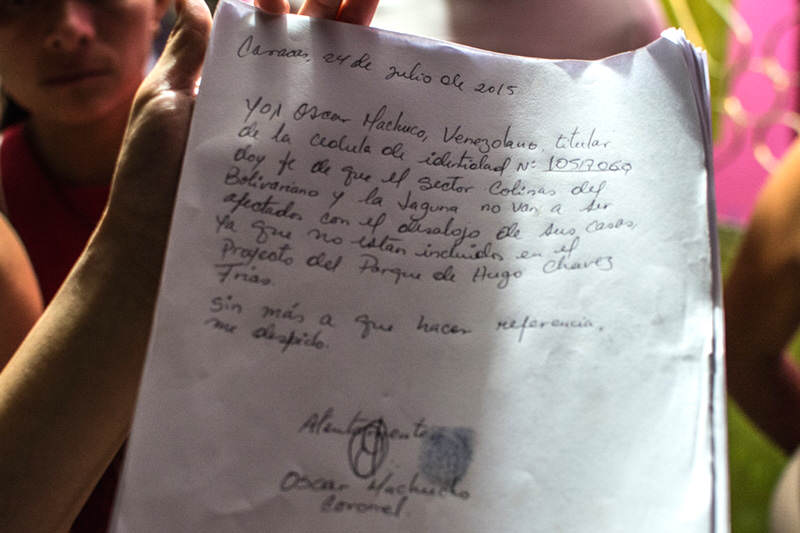 Caracas, 24 de Julio de 2015
YO, Oscar Machuco, Venezolano, titular
de la cedula de identidad Nº 10517060
doy fe de que el sector Colinas del
Bolivariano y la Laguna no van a ser
afectados con el desalojo de sus casas,
ya que no están incluidos en el
Proyecto del Parque de Hugo Chavez
Frias.
Sin más a que hacer referencia.
me despido.
Atentamente
Oscar Machucho
Coronel.